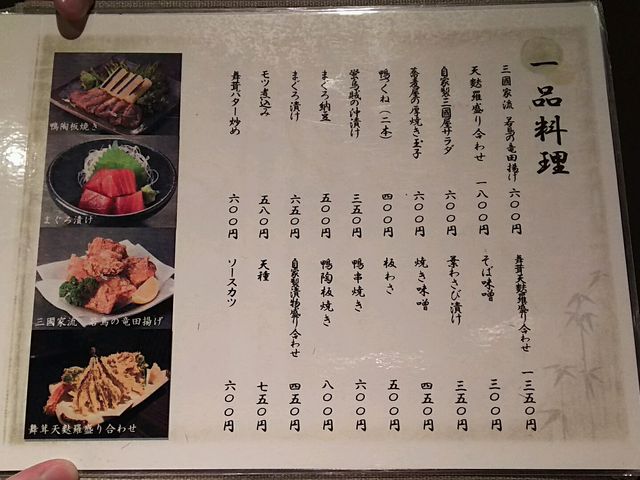 一品料理
三國家流 若鳥の竜田揚げ 六〇〇円
天麩羅盛り合わせ 一八〇〇円
自家製三國屋サラダ 六〇〇円
蕎麦屋の厚焼き玉子 六〇〇円
鴨づくね(二本) 四〇〇円
蛍烏賊の沖漬け 三五〇円
まぐろ納豆 五〇〇円
まぐろ漬け 六五〇円
モツ煮込み 五八〇円
舞茸バター炒め 六〇〇円
舞茸天麩羅盛り合わせ 一三五〇円
そば味噌 三〇〇円
葉わさび漬け 三五〇円
焼き味噌 四五〇円
板わさ 五〇〇円
鴨串焼き 六〇〇円
鴨陶板焼き 八〇〇円
自家製漬物盛り合わせ 四五〇円
天種 七五〇円
ソースカツ 六〇〇円
鴨陶板焼き
まぐろ漬け
三國家流 若鳥の竜田揚げ
舞茸天麩羅盛り合わせ